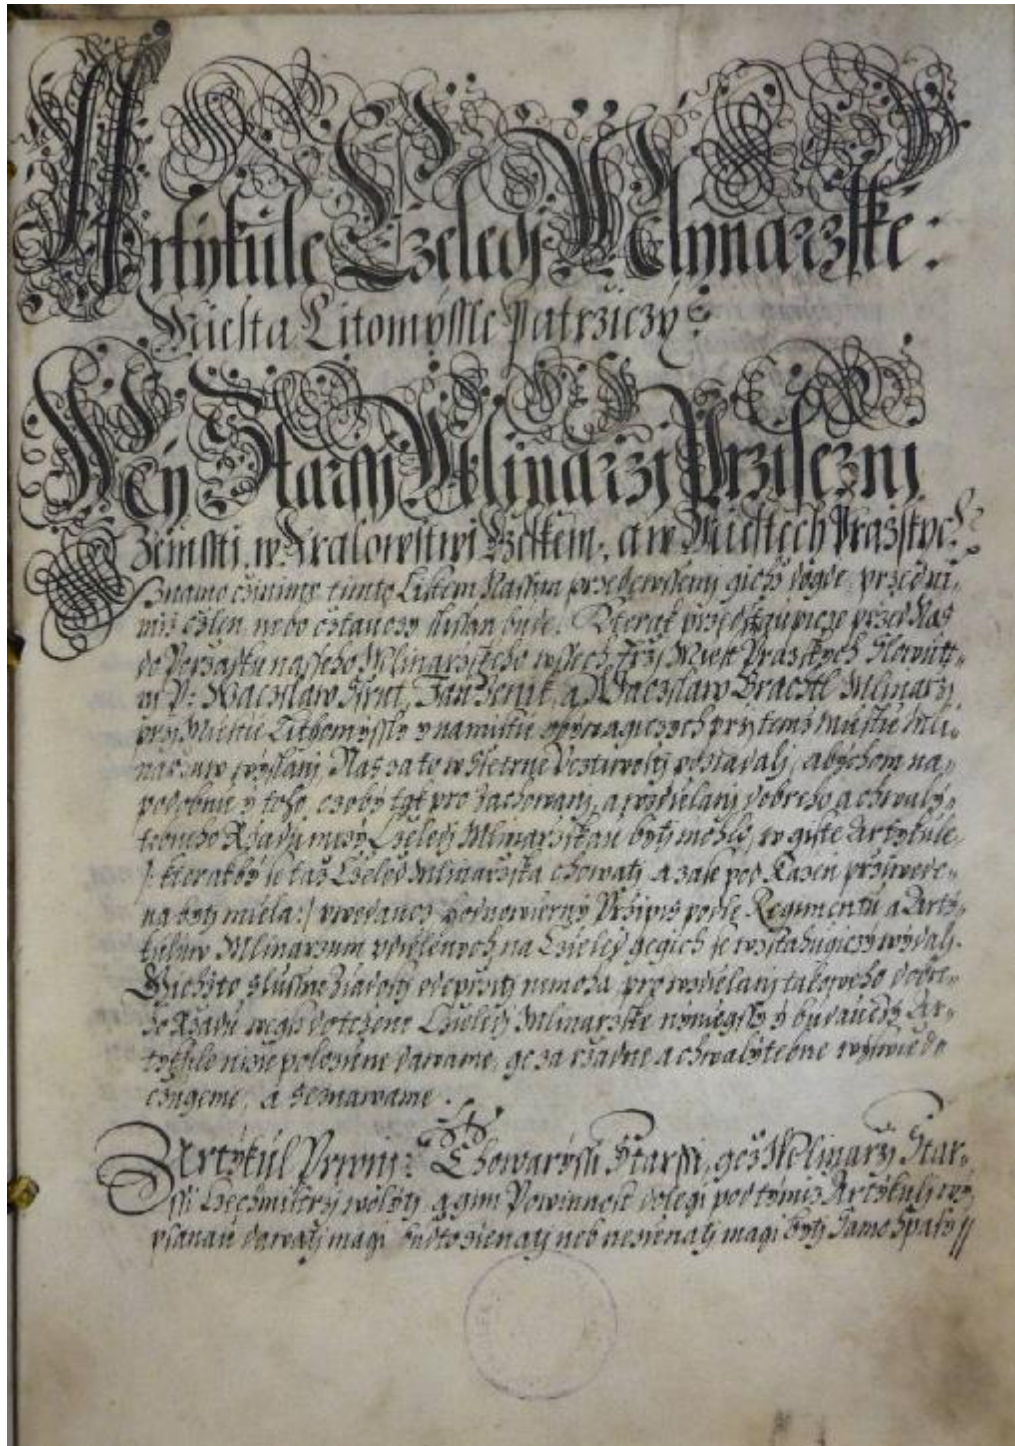 Artykule Czeledj Mlynarzske:
Miesta Litomyssle Patrziczy:
My Starssj Mlinarzj Przisezni
Zemssti w Kralowstwi Czeskem, a w Miestech Prazskych
Znamo czinime timto Listem Nassim przedewssemi giehz dogde, przed ni,,
miz czten nebo cztaucy slissan bude. Kterak przedstaupicze przed Nas
do Porzadku nasseho Mlinarzskeho wssech trzj Miest Prazskych Slowutt,,
nj P: Waczslaw Jan a Waczslaw Mlinarzj
przj Miestie Lithomyssly y namistie gynych przj temz Miestie Mli,,
narzuw wyslanj, Nas za to w Ssetrne Vcztiwosti pozadalj, abychom na,,
podobnie y toho, czoby tyt pro zachowanj, a wzdielanj dobreho a chwaly,,
tebneho Rzadu mezy Czeledj Mlinarzskau bytj mohlo, w giste Artykule
/: kterakby se taz Czeled Mlinarzska chowatj a zase pod Kazen przwede,,
na bytj miela:/ vwedaucz hodnowierny Przipis podle Regimentu a Arty,,
kuluw Mlinarzum vdielenych, na Czieled gegich se wstahugiczy wydalj.
Gichzto slussne Ziadostj odeprzitj nemoha, pro wzdielanj takoweho dobre,,
ho Rzadu wegss dotczene Czieledj Mlinarzske nyniegssy y buducy Ar,,
tykule nize polozene dawame, ge za rzadne a chwalytebne wyswied,,
czugeme, a seznawame.
Artykul Prwnj: Towaryssi Starssi, gez Mlinarzj Star,,
ssi Czechmistrzj wolytj, a gim Powinnost dolegi pod tymiz Artykulj wy,,
psanau dawatj magi, budto zienatj neb nezienatj magi bytj